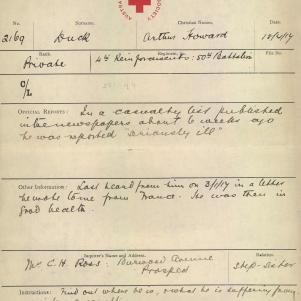 SOCIETY
AUSTRA
No. Surname. Christian Names.
2169 Duck Arthur Howard 12/4/17
Rank. Regiment. File No.
Private 4th Reinforcements: 50th Battalion
OFFICIAL REPORTS: In a casualty list published
in the newspapers about 6 weeks ago
he was reported "seriously ill"
Other Information: Last heard from him on 3/1/17 in a letter
he wrote to me from France. He was then in
good health.
Inquirer's Name and Address. Relation
Mrs C. H. Ross: Burwood Avenue Step-Sister
Prospect
Instructions: Find out where he is, & what he is suffering from